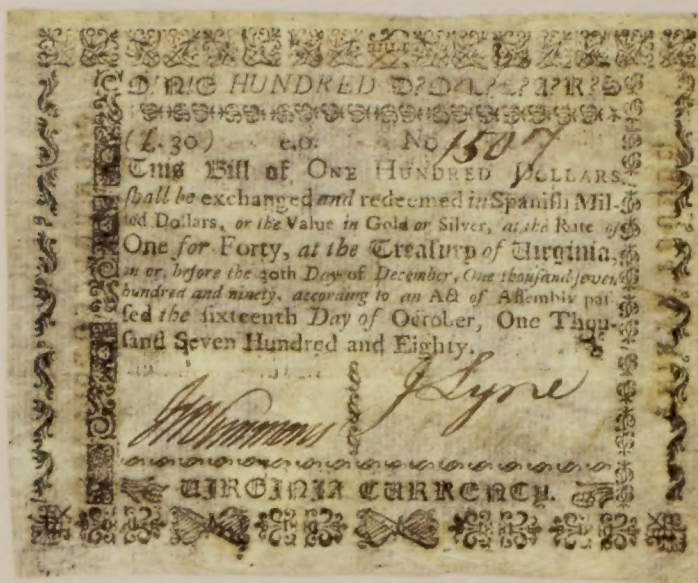 O?N?E HUNDRED D?O?L?L?A?R?S
(£. 30) e.o. No 1507
This Bill of ONE HUNDRED DOLLARS
ſhall be exchanged and redeemed in Spaniſh Mil-
led Dollars, or the Value in Gold or Silver, at the Rate of
One for Forty, at the Treaſury of Virginia,
in or, before the 30th Day of December, One thouſand ſeven
hundred and ninety, according to an Act of Aſſembly paſ-
ſed the ſixteenth Day of October, One Thou-
ſand Seven Hundred and Eighty.
J Lyne
VIRGINIA CURRENCY.